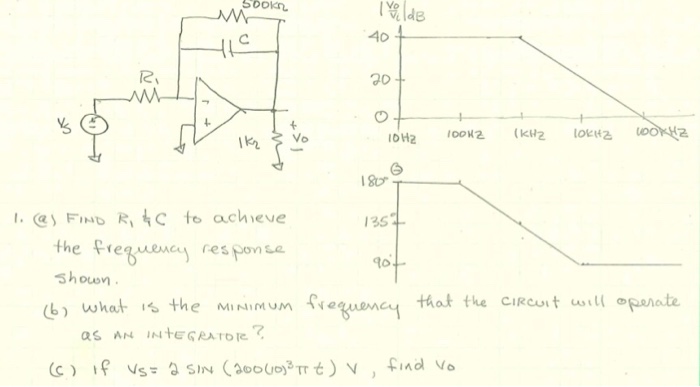 500KΩ
C
R₁
Vs
- +
1KΩ
+ Vo -
|Vo/Vi|dB
40
20
0
10HZ 100HZ 1KHZ 10KHZ 100KHZ
θ
180°
135°
90°
1. (a) FIND R₁ & C to achieve
the frequency response
shown.
(b) what is the MINIMUM frequency that the CIRCUIT will operate
as AN INTEGRATOR?
(c) if Vs= 2 SIN (200(10)³πt) V, find Vo